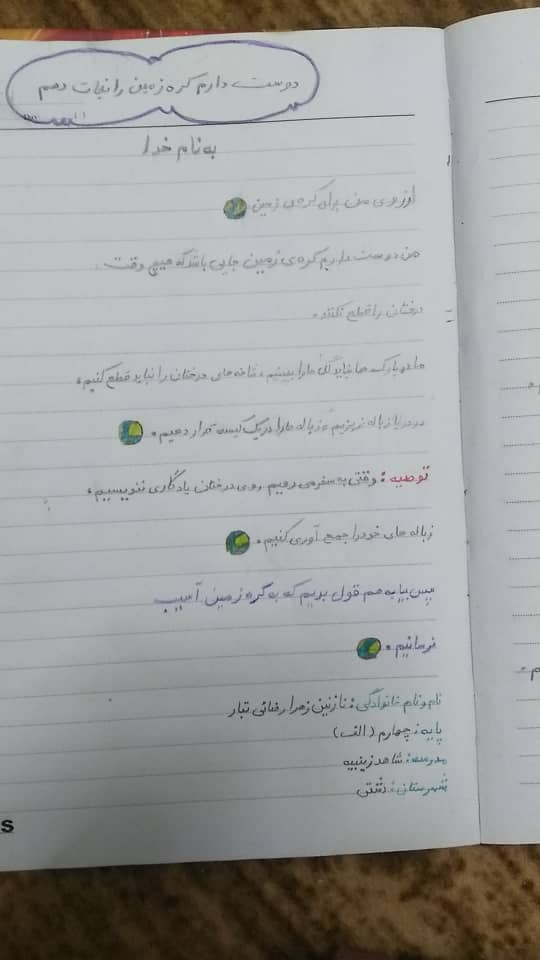 دوست دارم کره زمین را نجات دهم
به نام خدا
ارزوی من برای کره‌ی زمین
من دوست دارم کره‌ی زمین جایی باشد که هیچ وقت
درختان را قطع نکنند.
ما در پارک ها نباید گل ها را بچینیم، شاخه های درختان را نباید قطع کنیم،
در دریا زباله نریزیم و زباله ها را در یک کیسه قرار دهیم.
توصیه: وقتی به سفر می رویم روی درختان یادگاری ننویسیم،
زباله های خود را جمع آوری کنیم.
پس بیا به هم قول بدیم که به کره زمین آسیب
نرسانیم.
نام و نام خانوادگی: نازنین زهرا رضائی تبار
پایه: چهارم (الف)
مدرسه: شاهد زینبیه
شهرستان: دشتی
S